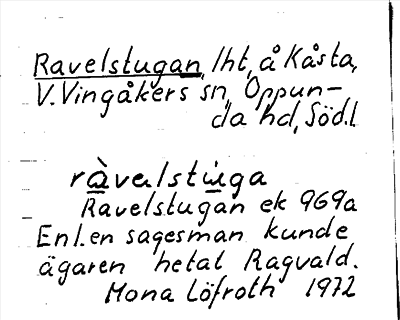 Ravelstugan, lht, å Kåsta,
V. Vingåkers sn, Oppun-
da hd, Södl
ràvalstùga
Ravelstugan ek 969a
Enl. en sagesman kunde
ägaren hetat Ragvald.
Mona Löfroth 1972